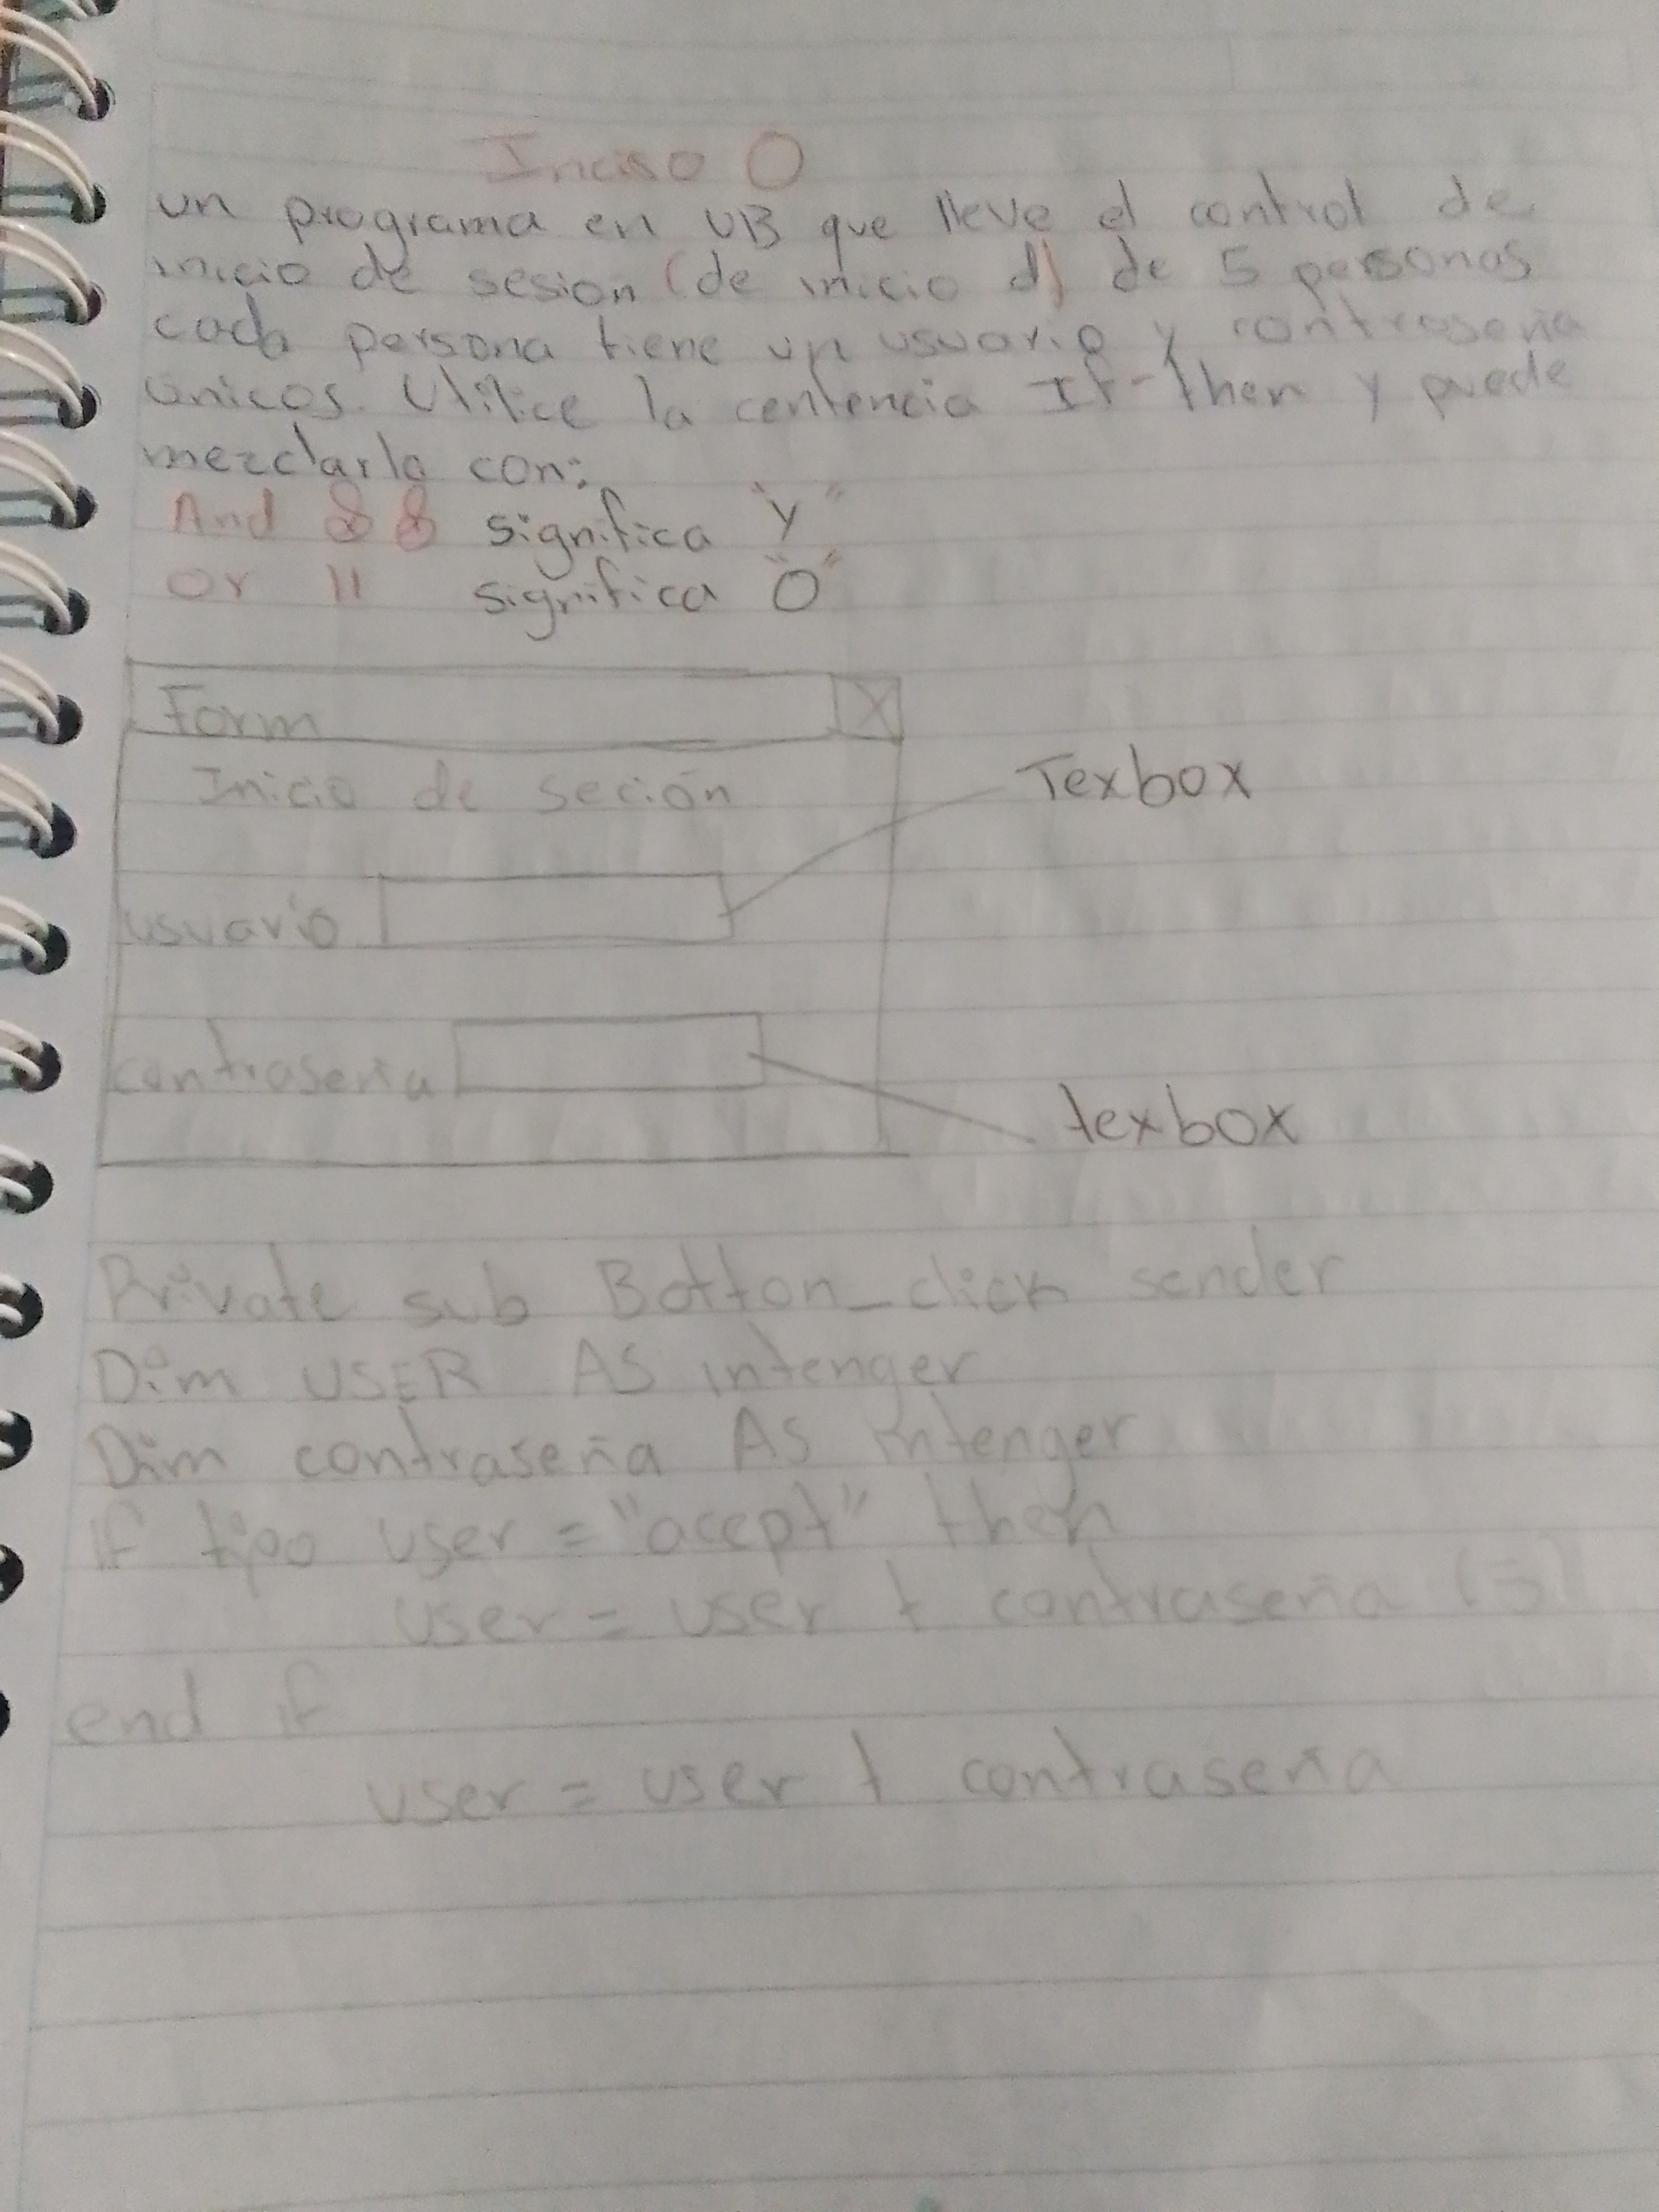 Inciso O
un programa en VB que lleve el control de
inicio de sesion (de inicio d) de 5 personas
cada persona tiene un usuario y contraseña
unicos. Utilice la centencia If-then y puede
mezclarlo con:
And && significa "y"
or || significa "O"
Form X
Inicio de seción
Texbox
usuario
contraseña
texbox
Private sub Botton_click sender
Dim USER AS intenger
Dim contraseña AS intenger
if tipo user = "acept" then
user = user + contraseña (5)
end if
user = user + contraseña